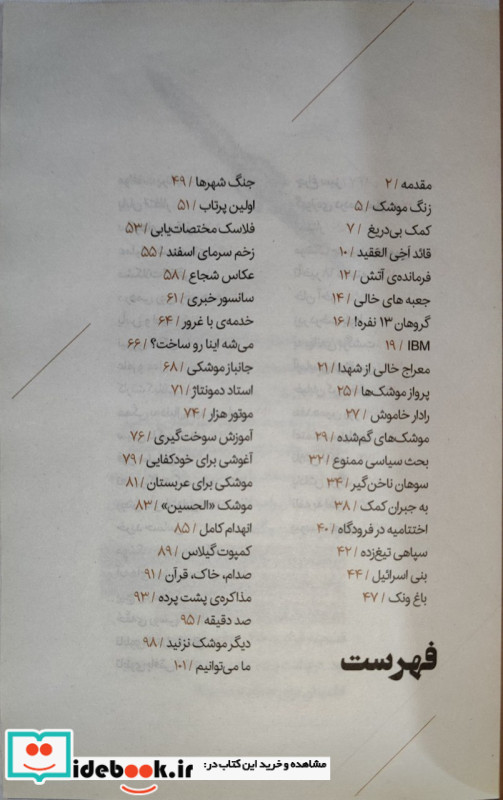 مقدمه / ۲
زنگ موشک / ۵
کمک بی‌دریغ / ۷
قائد أخِی العَقید / ۱۰
فرمانده‌ی آتش / ۱۲
جعبه های خالی / ۱۴
گروهان ۱۳ نفره! / ۱۶
IBM / ۱۹
معراج خالی از شهدا / ۲۱
پرواز موشک‌ها / ۲۵
رادار خاموش / ۲۷
موشک‌های گم‌شده / ۲۹
بحث سیاسی ممنوع / ۳۲
سوهان ناخن‌گیر / ۳۴
به جبران کمک / ۳۸
اختتامیه در فرودگاه / ۴۰
سپاهی تیغ‌زده / ۴۲
بنی اسرائیل / ۴۴
باغ ونک / ۴۷
فهرست
جنگ شهرها / ۴۹
اولین پرتاب / ۵۱
فلاسک مختصات‌یابی / ۵۳
زخم سرمای اسفند / ۵۵
عکاس شجاع / ۵۸
سانسور خبری / ۶۱
خدمه‌ی با غرور / ۶۴
می‌شه اینا رو ساخت؟ / ۶۶
جانباز موشکی / ۶۸
استاد دمونتاژ / ۷۱
موتور هزار / ۷۴
آموزش سوخت‌گیری / ۷۶
آغوشی برای خودکفایی / ۷۹
موشکی برای عربستان / ۸۱
موشک «الحسین» / ۸۳
انهدام کامل / ۸۵
کمپوت گیلاس / ۸۹
صدام، خاک، قرآن / ۹۱
مذاکره‌ی پشت پرده / ۹۳
صد دقیقه / ۹۵
دیگر موشک نزنید / ۹۸
ما می‌توانیم / ۱۰۱
مشاهده و خرید این کتاب در:
idebook.ir